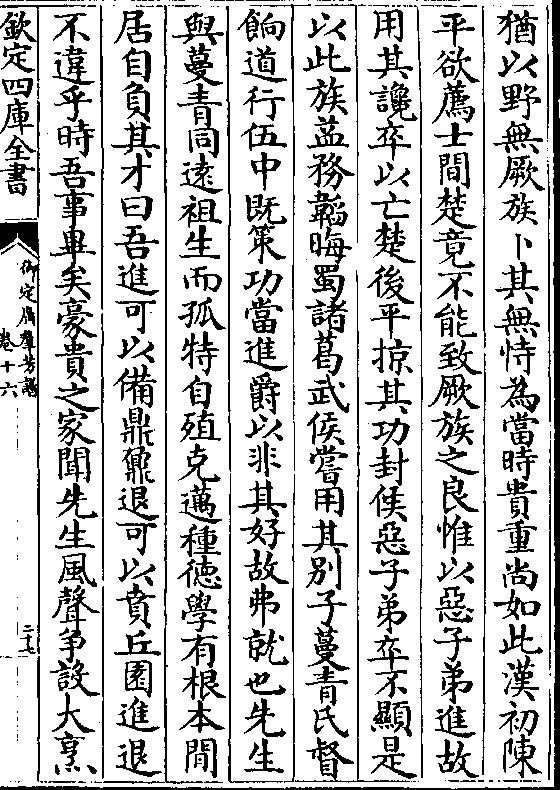 猶以野無厥族卜其無恃為當時貴重尚如此漢初陳
平欲薦士間楚竟不能致厥族之良惟以惡子弟進故
用其讒卒以亡楚後平掠其功封侯惡子弟卒不顯是
以此族益務韜晦蜀諸葛武侯嘗用其别子蔓青氏督
餉道行伍中既策功當進爵以非其好故弗就也先生
與蔓青同逺祖生而孤特自殖克邁種徳學有根本間
居自負其才曰吾進可以備鼎鼐退可以賁丘園進退
不違乎時吾事畢矣豪貴之家聞先生風聲争設大烹
欽定四庫全書
御定廣羣芳譜
卷十六
二十七